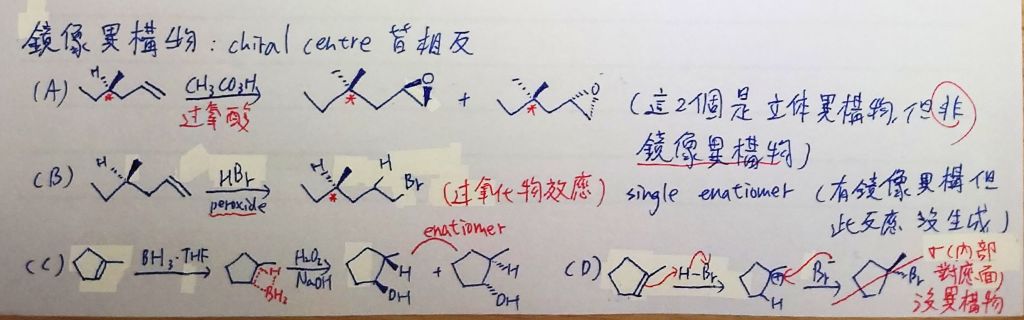 鏡像異構物：chiral centre 皆相反
(A) H * CH3CO3H 过氧酸 * O + * O (這2個是立体異構物,但非
鏡像異構物)
(B) H HBr peroxide H * H Br (过氧化物效應) single enatiomer (有鏡像異構但
此反應沒生成)
enatiomer
(C) BH3·THF H BH2 H2O2 NaOH H OH + H OH (D) H-Br H + Br- Br σ(內部
對應面)
沒異構物